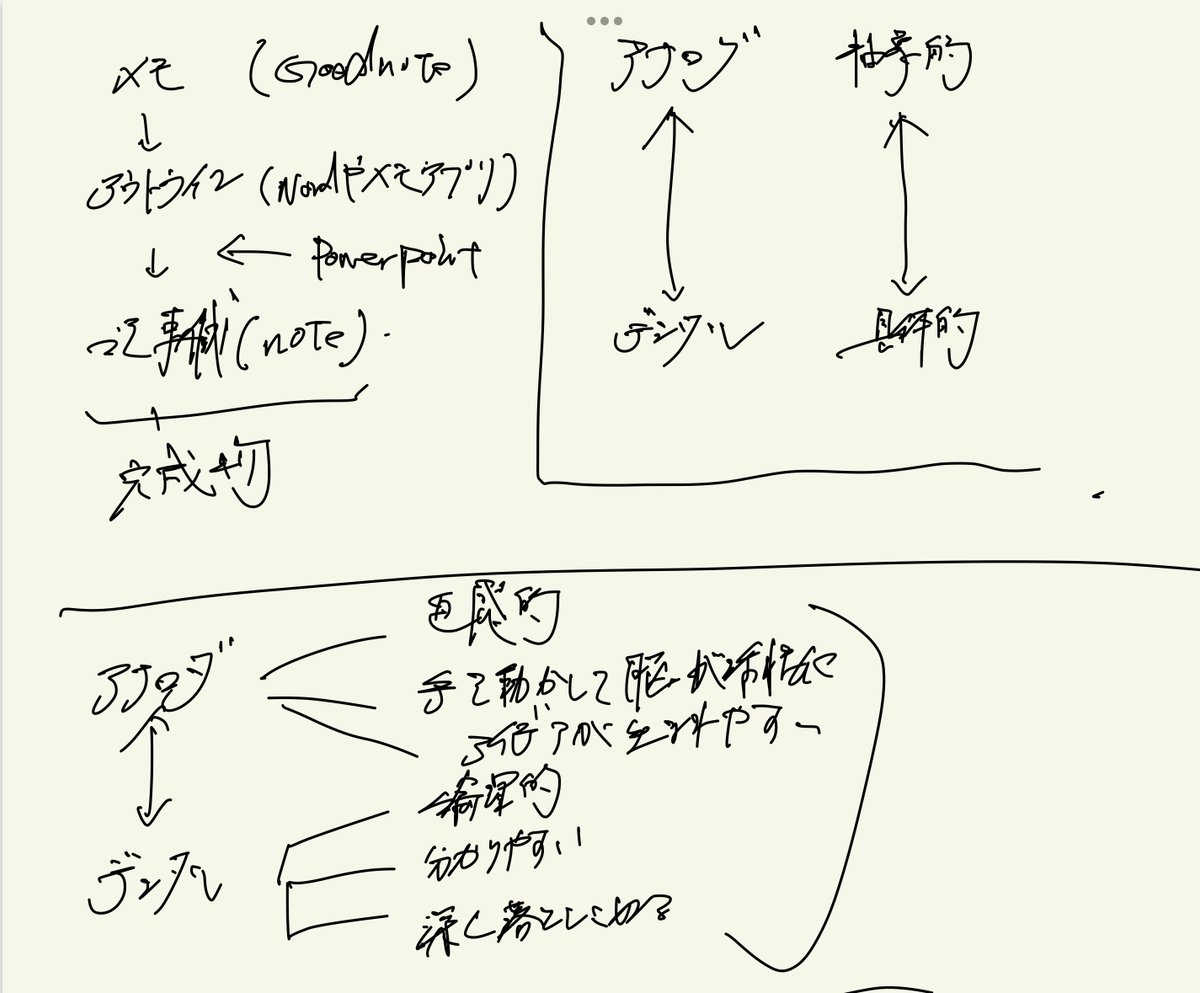 メモ (Goodnote)
↓
アウトライン (Wordやメモアプリ)
↓ ← Powerpoint
記事職(note).
完成物
アナログ 抽象的
デジタル 具体的
アナログ
直感的
手を動かして脳が活性化
アイデアが生まれやすい
デジタル
論理的
分かりやすい
深く落とし込める